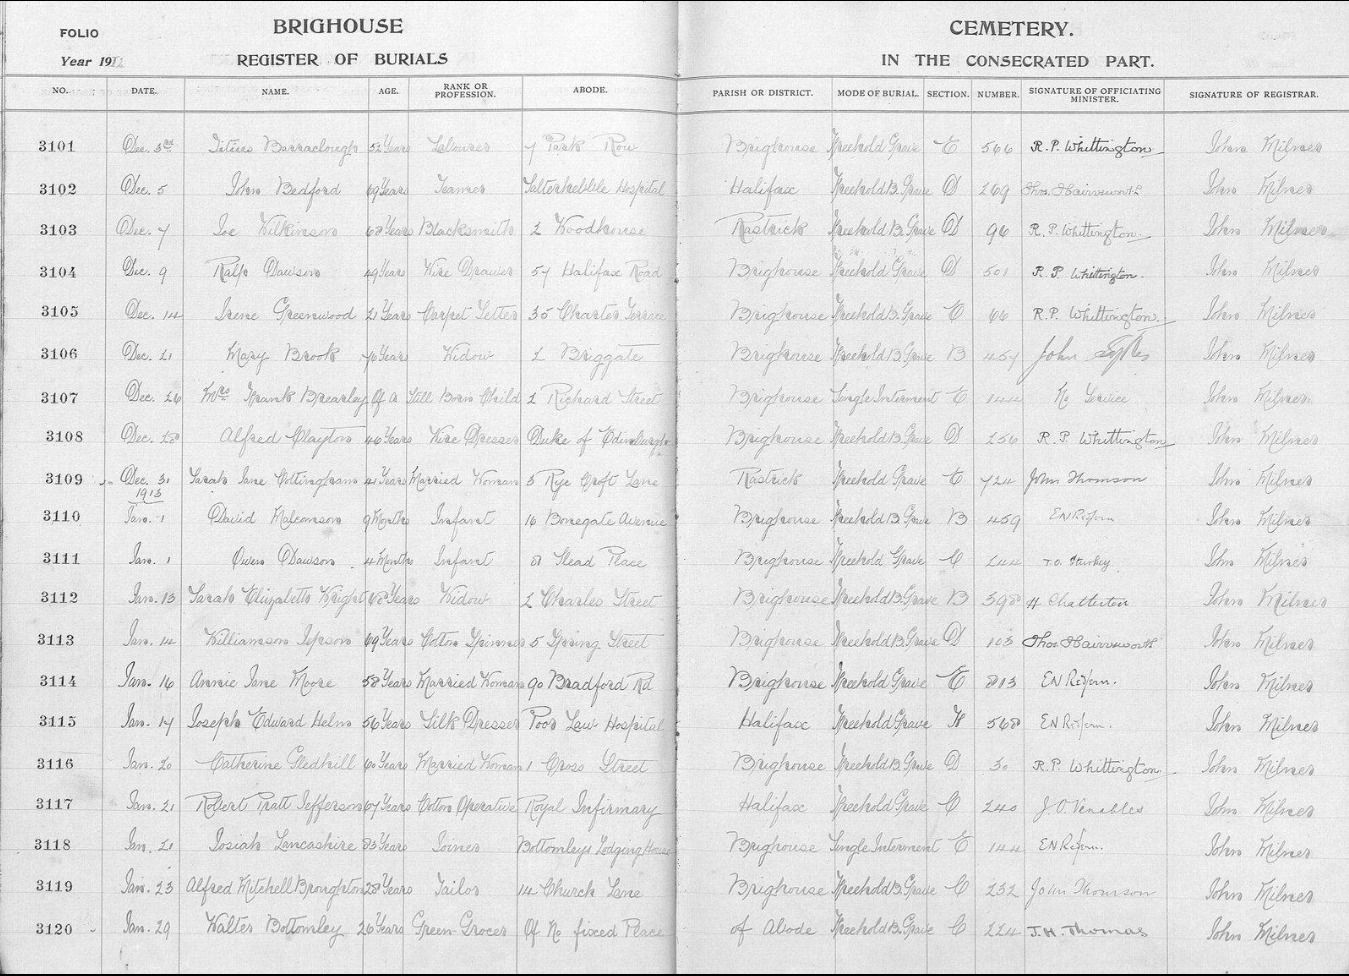 BRIGHOUSE CEMETERY.
FOLIO
Year 1912 REGISTER OF BURIALS IN THE CONSECRATED PART.
NO. DATE. NAME. AGE. RANK OR PROFESSION. ABODE. PARISH OR DISTRICT. MODE OF BURIAL. SECTION. NUMBER. SIGNATURE OF OFFICIATING MINISTER. SIGNATURE OF REGISTRAR.
3101 Dec. 3rd Barraclough 52 Years Labourer 7 Park Row Brighouse Freehold Grave E 566 R. P. Whittington John Milner
3102 Dec. 5 John Bedford 69 Years Teamer Salterhebble Hospital Halifax Freehold B. Grave D 269 Thos. Hainsworth John Milner
3103 Dec. 7 Joe Wilkinson 68 Years Blacksmith 2 Woodhouse Rastrick Freehold B. Grave D 96 R. P. Whittington John Milner
3104 Dec. 9 Ralp Dawson 49 Years Wire Drawer 57 Halifax Road Brighouse Freehold Grave D 501 R. P. Whittington. John Milner
3105 Dec. 14 Irene Greenwood 21 Years Carpet Setter 35 Charles Terrace Brighouse Freehold B. Grave C 66 R. P. Whittington. John Milner
3106 Dec. 21 Mary Brook 76 Years Widow 2 Briggate Brighouse Freehold B. Grave B 457 John Sykes John Milner
3107 Dec. 26 Mrs Frank Brearley Of A Still Born Child 2 Richard Street Brighouse Single Interment E 144 No Service John Milner
3108 Dec. 28 Alfred Clayton 46 Years Wire Dresser Duke of Edinburgh Brighouse Freehold B. Grave D 256 R. P. Whittington John Milner
3109 Dec. 31 Sarah Jane Cottingham 41 Years Married Woman 3 Rye Croft Lane Rastrick Freehold Grave E 724 John Thomson John Milner
1913
3110 Jan. 1 David Malcomson 9 Months Infant 16 Bonegate Avenue Brighouse Freehold B. Grave B 459 John Milner
3111 Jan. 1 Owen Dawson 4 Months Infant 8 Stead Place Brighouse Freehold Grave C 244 John Milner
3112 Jan. 13 Sarah Elizabeth Wright 68 Years Widow 2 Charles Street Brighouse Freehold B. Grave B 398 H. Chatterton John Milner
3113 Jan. 14 Williamson Jepson 69 Years Cotton Spinner 5 Spring Street Brighouse Freehold B. Grave D 103 Thos. Hainsworth John Milner
3114 Jan. 16 Annie Jane Moore 58 Years Married Woman 90 Bradford Rd Brighouse Freehold Grave E 813 John Milner
3115 Jan. 17 Joseph Edward Helm 56 Years Silk Dresser Poor Law Hospital Halifax Freehold Grave F 568 John Milner
3116 Jan. 20 Catherine Gledhill 60 Years Married Woman 1 Cross Street Brighouse Freehold B. Grave D 30 R. P. Whittington John Milner
3117 Jan. 21 Robert Pratt Jefferson 67 Years Cotton Operative Royal Infirmary Halifax Freehold Grave C 240 J. O. Venables John Milner
3118 Jan. 21 Josiah Lancashire 83 Years Joiner Bottomleys Lodging House Brighouse Single Interment E 144 John Milner
3119 Jan. 23 Alfred Mitchell Broughton 28 Years Tailor 14 Church Lane Brighouse Freehold B. Grave C 232 John Thomson John Milner
3120 Jan. 29 Walter Bottomley 26 Years Green Grocer Of No fixed Place of Abode Freehold B. Grave C 224 J. H. Thomas John Milner